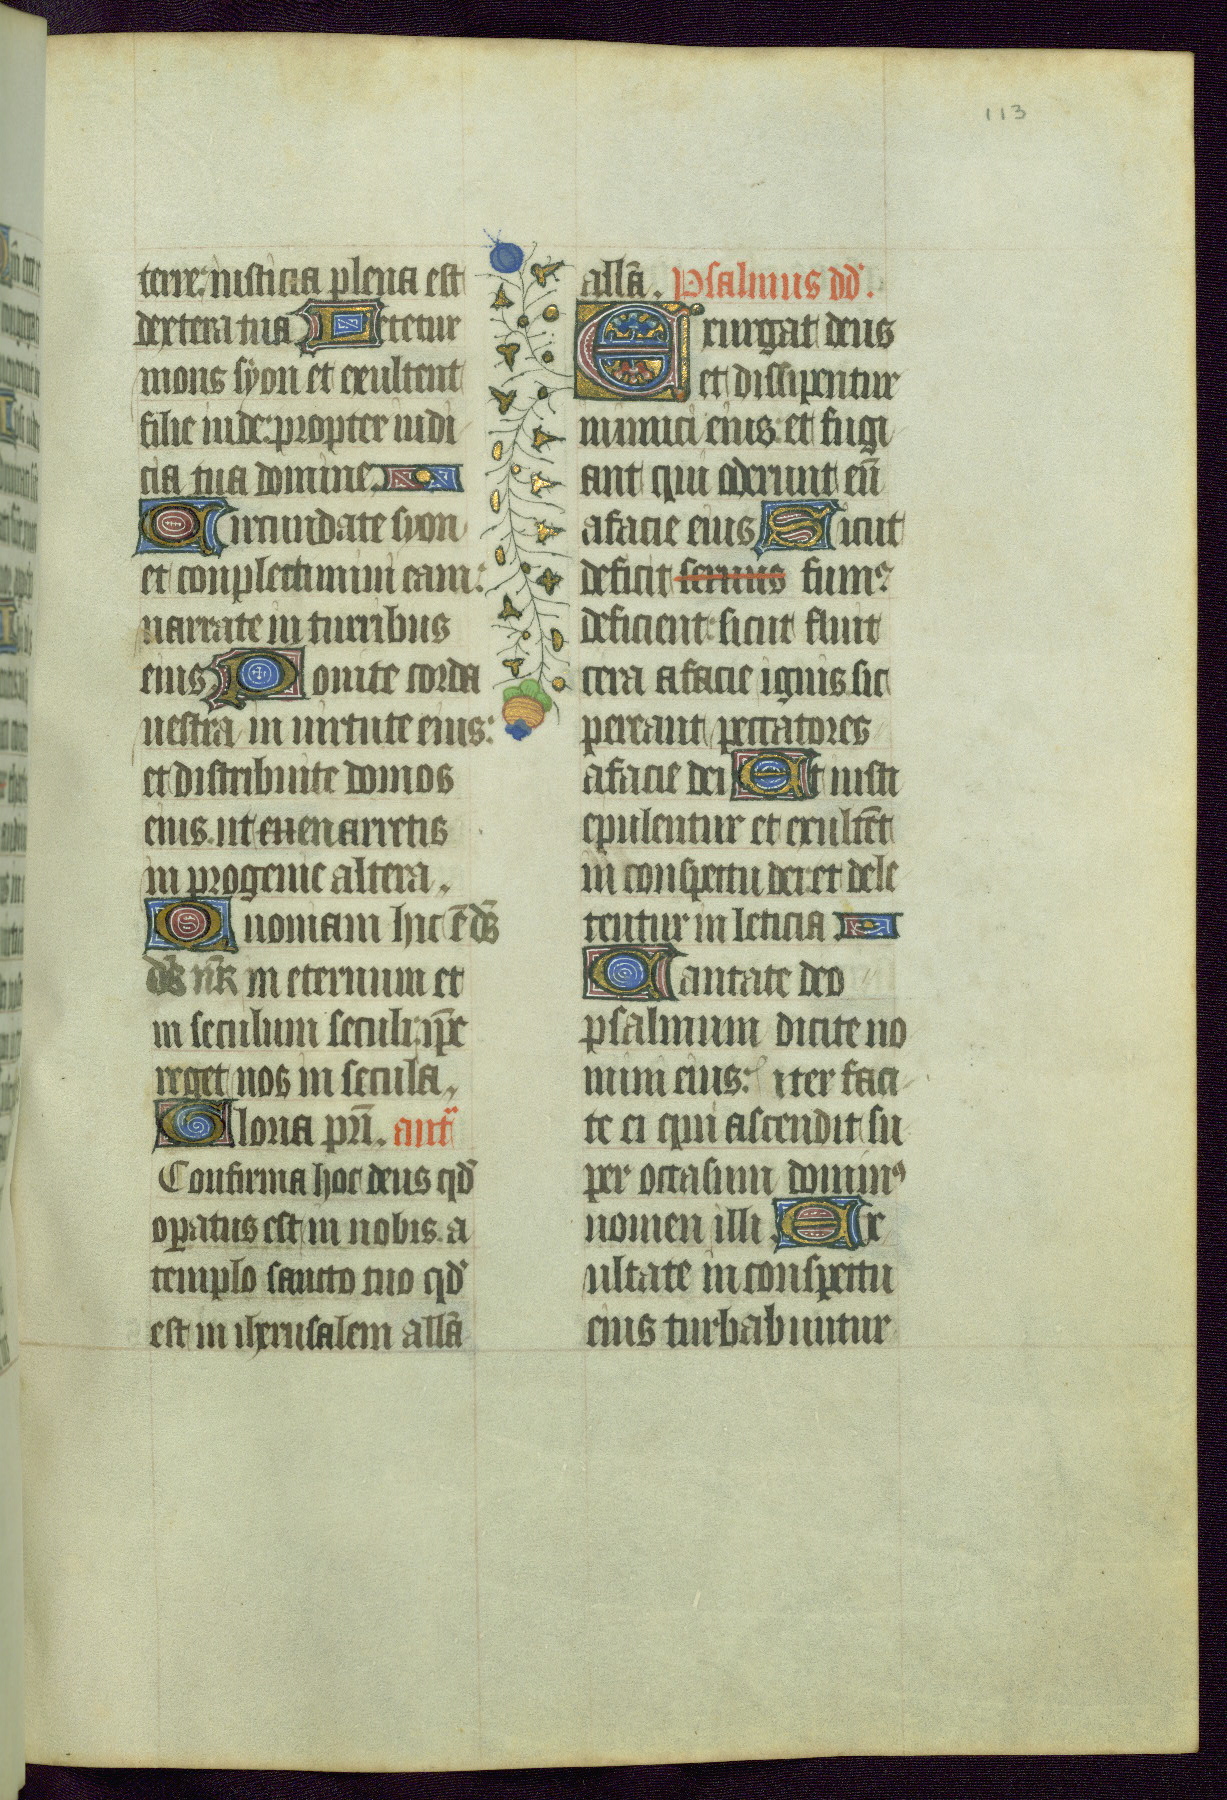 113
terre: iusticia plena est
dextera tua Letetur
mons syon et exultent
filie iude: propter iudi
cia tua domine.
Circumdate syon
et conplectimini eam:
narrate in turribus
eius Ponite corda
uestra in uirtute eius:
et distribuite domos
eius. ut enenarretis
in progenie altera.
Quoniam hic ē ds̄
ds̄ nr̄ in eternum et
in seculum seculi: ip̄e
reget nos in secula.
Gloria pri̅. ant̃
Confirma hoc deus qd̕
opatus est in nobis. a
templo sancto tuo qd̕
est in iherusalem allā
allā. Psalmus dd̕.
Exurgat deus
et dissipentur
inimici eius: et fugi
ant qui oderunt eū
a facie eius Sicut
deficit seruus fumꝰ
deficient: sicut fluit
cera a facie ignis sic
pereant peccatores
a facie dei Et iusti
epulentur et exultēt
in conspectu dei: et dele
tentur in leticia
Cantate deo
psalmum dicite no
mini eius: iter faci
te ei qui ascendit su
per occasum dominꝰ
nomen illi. Ex
ultate in conspectu
eius turbabuntur